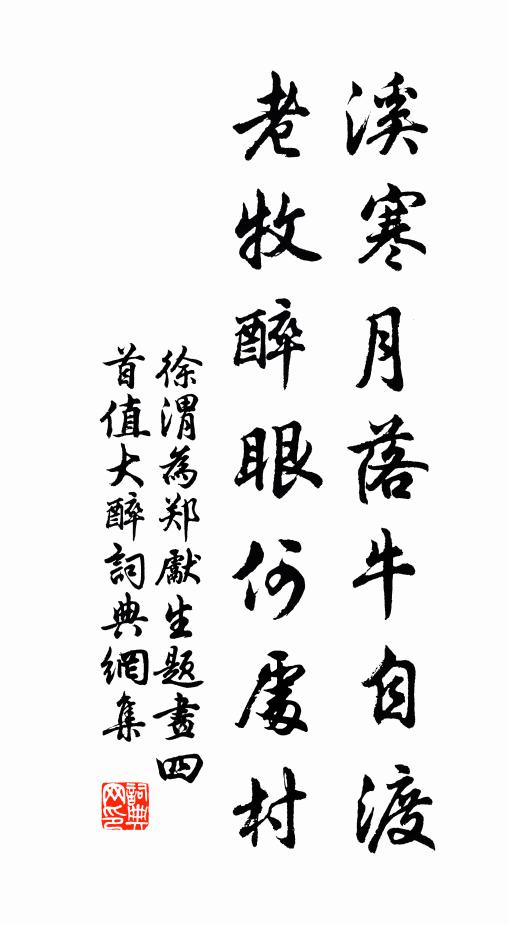 溪寒月落牛自渡
老牧醉眼何處村
徐渭為郑獻生题畫四
首值大醉詞典網集
詞典
网印